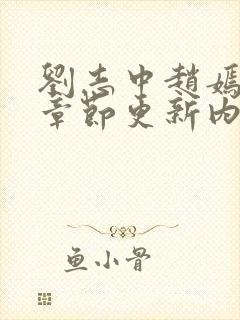 劉志中趙嫣
章節更新內
鱼小骨